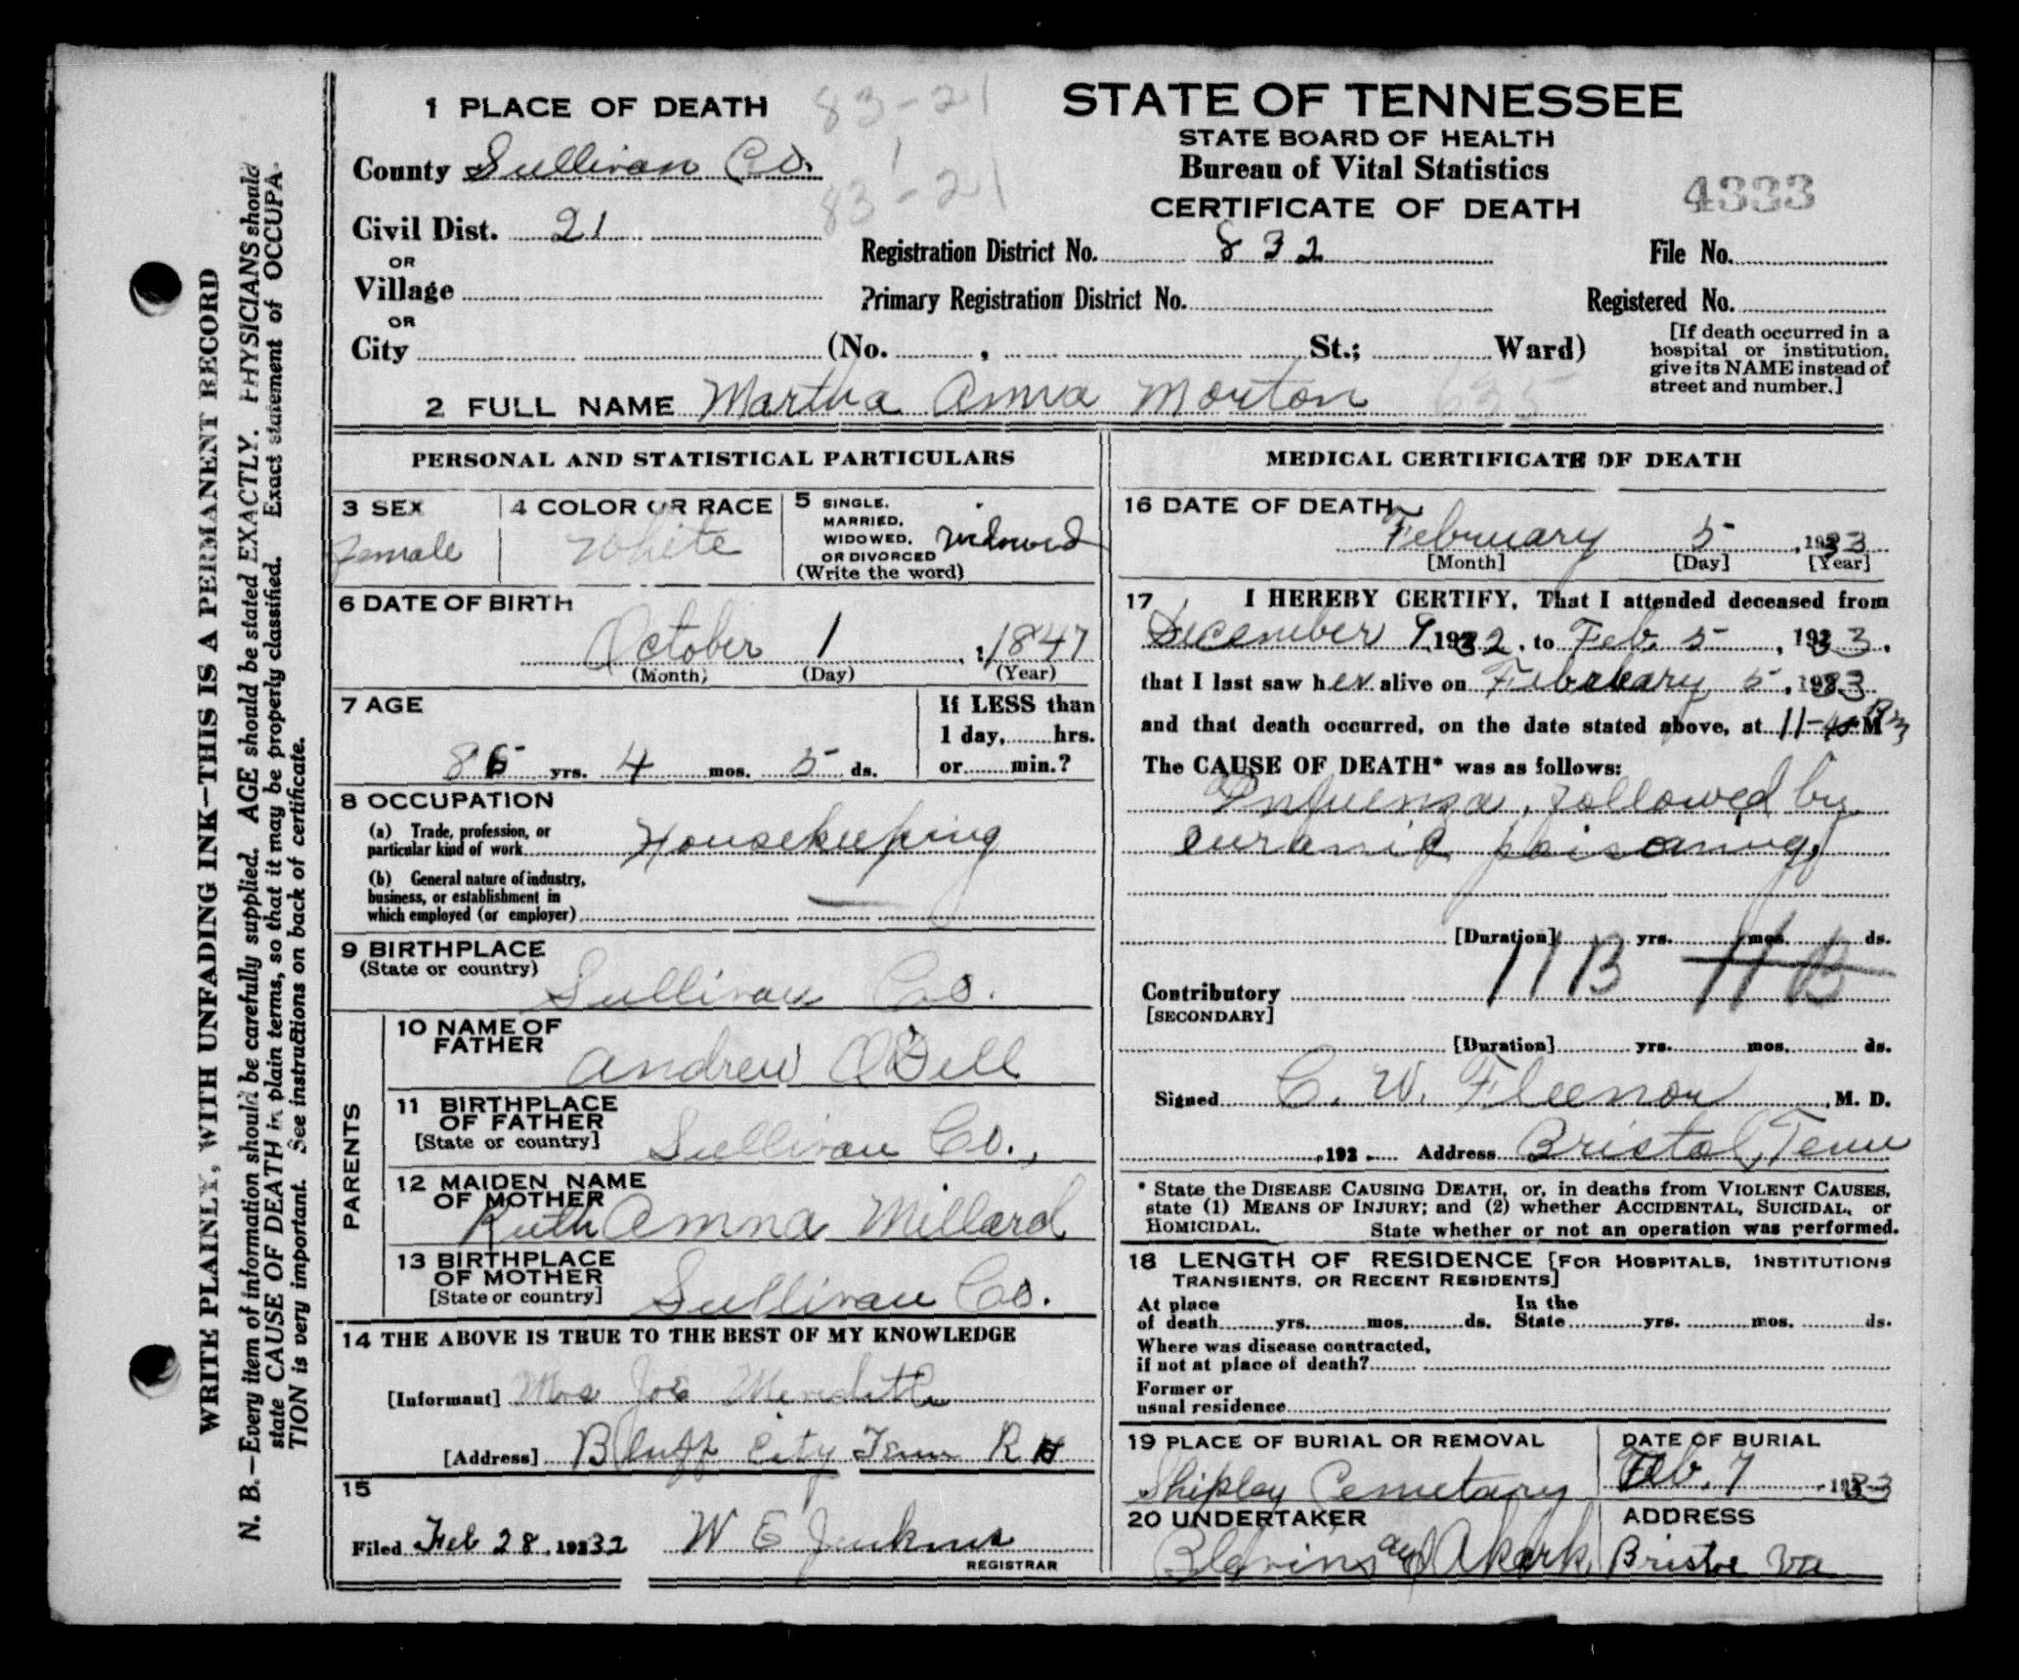 WRITE PLAINLY, WITH UNFADING INK—THIS IS A PERMANENT RECORD
N. B.—Every item of information should be carefully supplied. AGE should be stated EXACTLY. PHYSICIANS should
state CAUSE OF DEATH in plain terms, so that it may be properly classified. Exact statement of OCCUPA-
TION is very important. See instructions on back of certificate.
1 PLACE OF DEATH 83-21
County Sullivan Co.
83-21
Civil Dist. 21
OR
Village
OR
City (No. , St.; Ward)
STATE OF TENNESSEE
STATE BOARD OF HEALTH
Bureau of Vital Statistics
CERTIFICATE OF DEATH
4333
Registration District No. 832
File No.
Primary Registration District No.
Registered No.
[If death occurred in a
hospital or institution,
give its NAME instead of
street and number.]
2 FULL NAME Martha Anna Morton 635
PERSONAL AND STATISTICAL PARTICULARS
3 SEX
Female
4 COLOR OR RACE
White
5 SINGLE,
MARRIED,
WIDOWED,
OR DIVORCED
(Write the word)
widowed
6 DATE OF BIRTH
October 1 , 1847
(Month) (Day) (Year)
7 AGE
85 yrs. 4 mos. 5 ds.
If LESS than
1 day, hrs.
or min.?
8 OCCUPATION
(a) Trade, profession, or
particular kind of work Housekeeping
(b) General nature of industry,
business, or establishment in
which employed (or employer) —
9 BIRTHPLACE
(State or country)
Sullivan Co.
PARENTS
10 NAME OF
FATHER
Andrew O'Dell
11 BIRTHPLACE
OF FATHER
[State or country] Sullivan Co.,
12 MAIDEN NAME
OF MOTHER
Ruth Amna Millard
13 BIRTHPLACE
OF MOTHER
[State or country] Sullivan Co.
14 THE ABOVE IS TRUE TO THE BEST OF MY KNOWLEDGE
[Informant] Mrs Joe Meredith
[Address] Bluff City Tenn R
15
Filed Feb 28, 192 32 W E Jenkins
REGISTRAR
MEDICAL CERTIFICATE OF DEATH
16 DATE OF DEATH
February 5 , 1933
[Month] [Day] [Year]
17 I HEREBY CERTIFY, That I attended deceased from
December 9, 1932, to Feb. 5, 1933,
that I last saw her alive on February 5, 1933
and that death occurred, on the date stated above, at 11-40 M Pm
The CAUSE OF DEATH* was as follows:
Influenza, followed by
euramic poisoning,
[Duration] yrs. mos. ds.
11 B 11 B
Contributory
[SECONDARY]
[Duration] yrs. mos. ds.
Signed C. W. Fleenor, M. D.
, 192 Address Bristol, Tenn
* State the DISEASE CAUSING DEATH, or, in deaths from VIOLENT CAUSES,
state (1) MEANS OF INJURY; and (2) whether ACCIDENTAL, SUICIDAL, or
HOMICIDAL. State whether or not an operation was performed.
18 LENGTH OF RESIDENCE [FOR HOSPITALS, INSTITUTIONS
TRANSIENTS, OR RECENT RESIDENTS]
At place
of death yrs. mos. ds.
In the
State yrs. mos. ds.
Where was disease contracted,
if not at place of death?
Former or
usual residence
19 PLACE OF BURIAL OR REMOVAL
Shipley Cemetary
DATE OF BURIAL
Feb. 7 , 1933
20 UNDERTAKER
Blevins and Akark
ADDRESS
Bristol Va